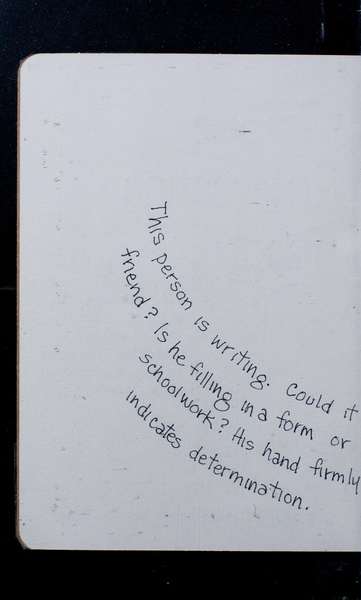 This person is writing. Could it
friend? Is he filling in a form or
schoolwork? His hand firmly
indicates determination.